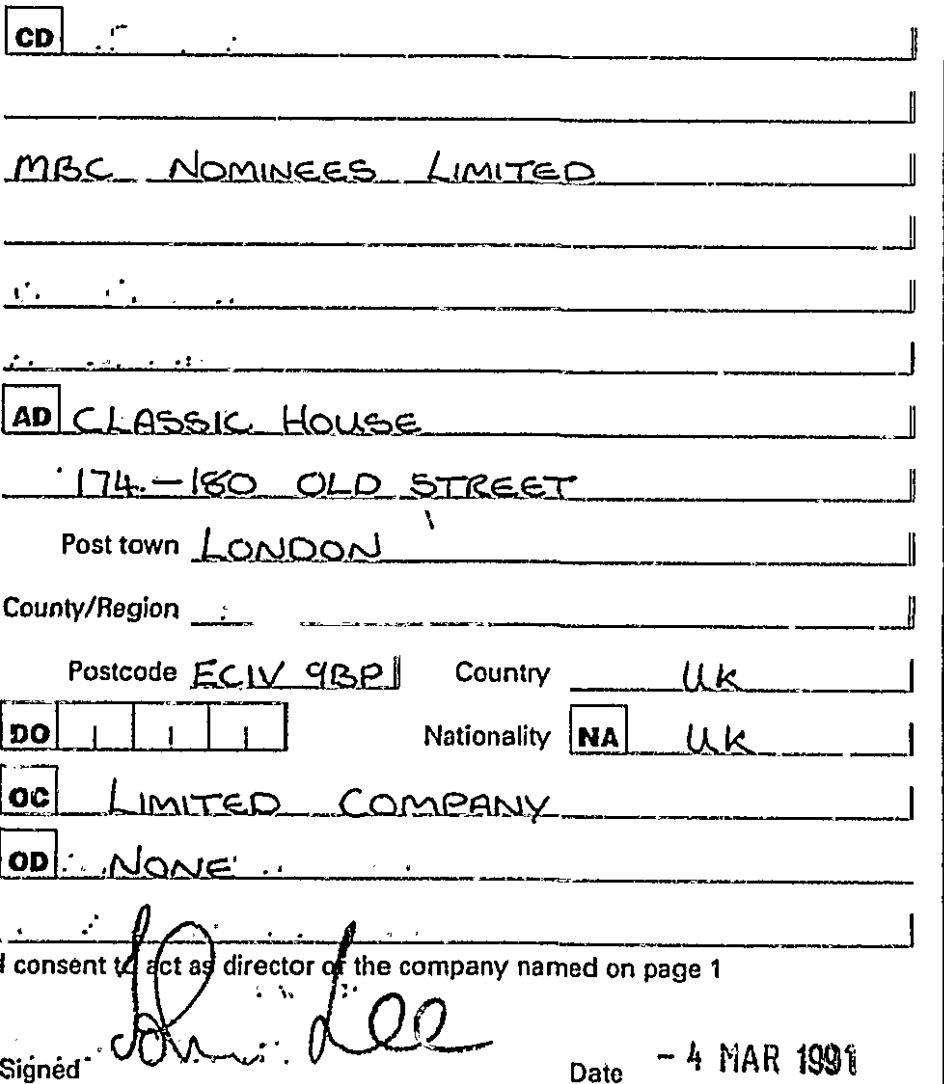 CD
MBC NOMINEES LIMITED
AD CLASSIC HOUSE
174-180 OLD STREET
Post town LONDON
County/Region
Postcode EC1V 9BP Country UK
DO Nationality NA UK
OC LIMITED COMPANY
OD NONE
I consent to act as director of the company named on page 1
Signed Lee Date - 4 MAR 1991